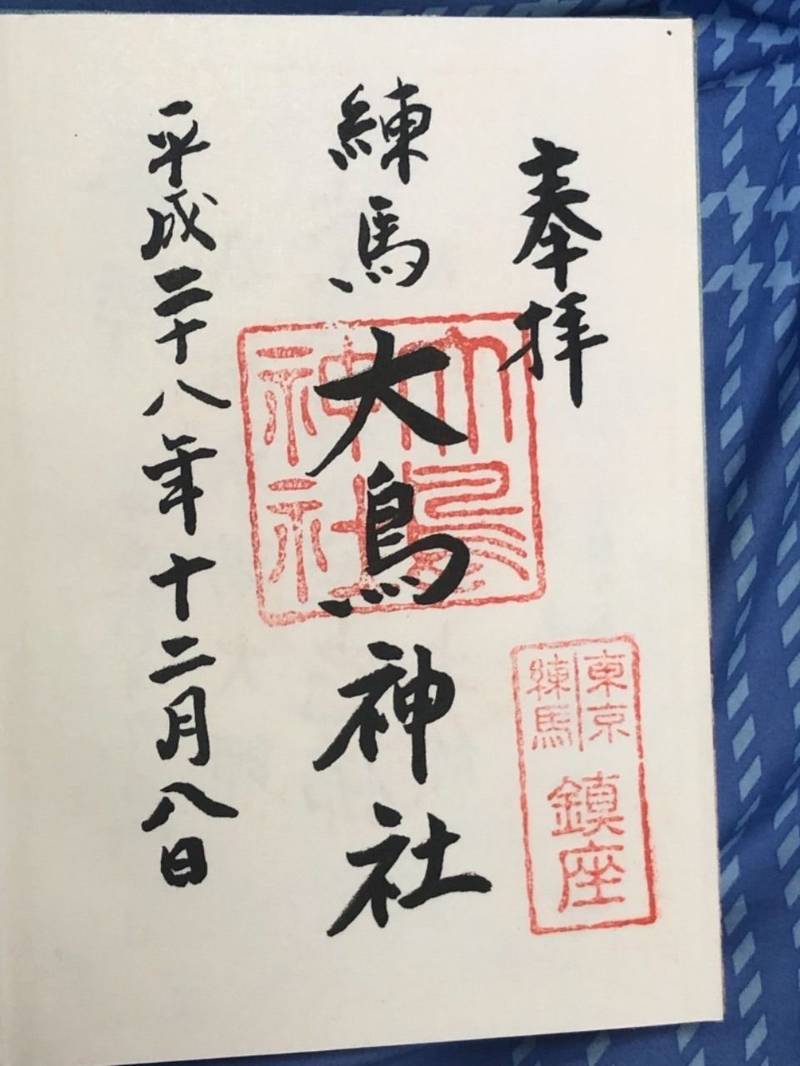 奉拝
練馬大鳥神社
平成二十八年十二月八日
大鳥
神社
東京
練馬
鎮座